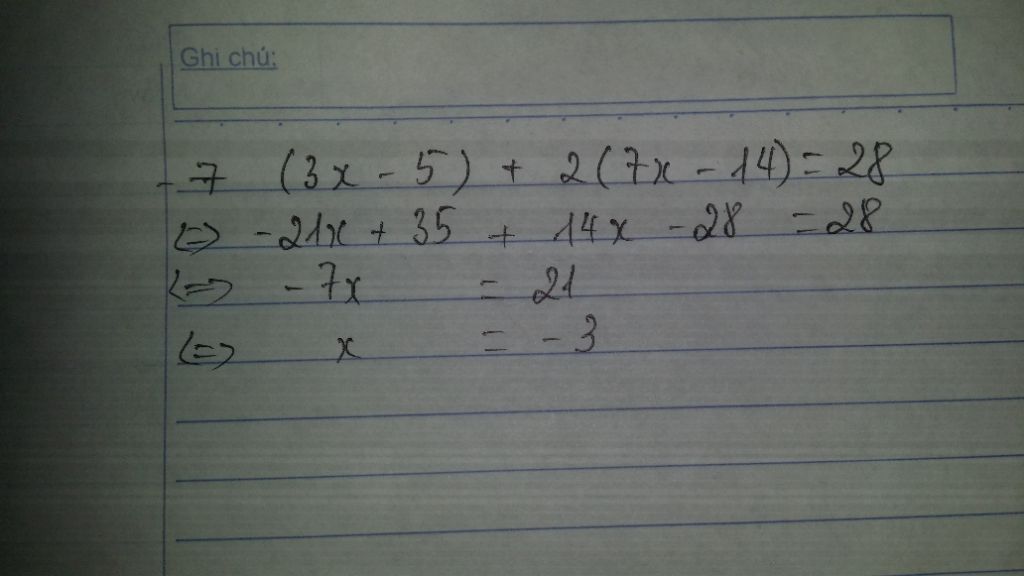 Ghi chú:
-7 (3x - 5) + 2(7x - 14) = 28
<=> -21x + 35 + 14x - 28 = 28
<=> -7x = 21
<=> x = -3